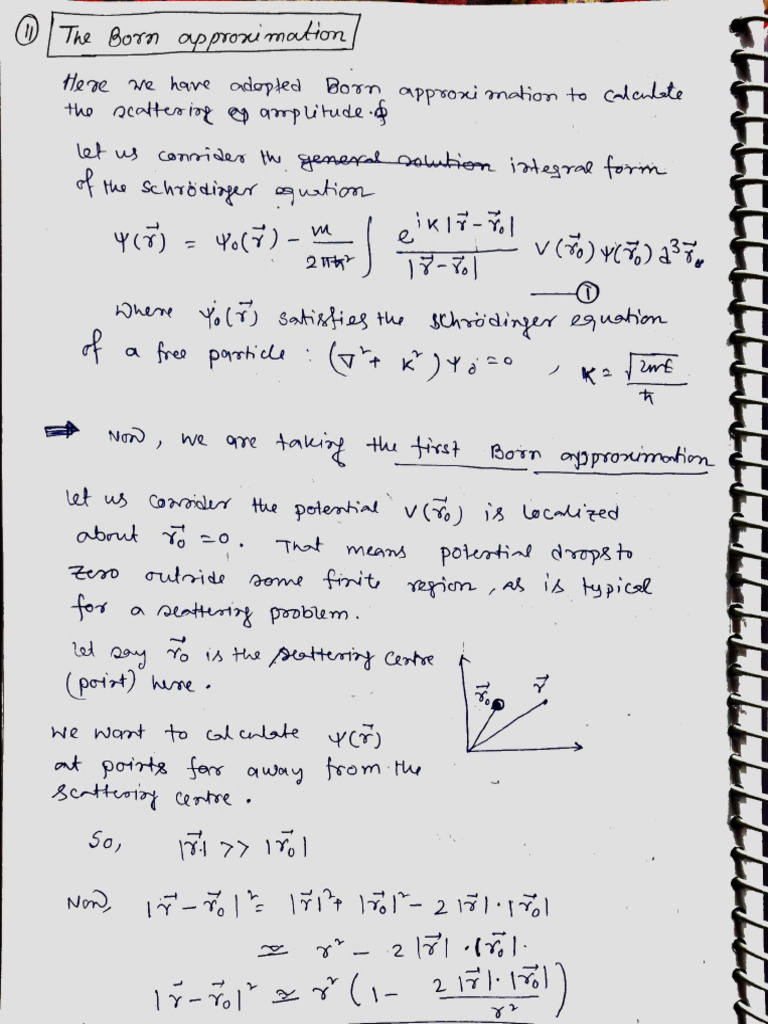 ⑪ The Born approximation
Here we have adopted Born approximation to calculate
the scattering amplitude.
Let us consider the general solution integral form
of the Schrödinger equation
ψ(r⃗) = ψ₀(r⃗) - m/2πħ² ∫ e^{iK|r⃗-r⃗₀|}/|r⃗-r⃗₀| V(r⃗₀)ψ(r⃗₀)d³r⃗₀
—①
where ψ₀(r⃗) satisfies the Schrödinger equation
of a free particle : (∇²+ K²)ψ₀=0 , K = √2mE/ħ
⇒ Now, we are taking the first Born approximation
Let us consider the potential V(r⃗₀) is localized
about r⃗₀ =0. That means potential drops to
zero outside some finite region, as is typical
for a scattering problem.
Let say r⃗₀ is the scattering centre
(point) here.
r⃗₀ r⃗
We want to calculate ψ(r⃗)
at points far away from the
scattering centre.
So, |r⃗| >> |r⃗₀|
Now, |r⃗-r⃗₀|² = |r⃗|²+ |r⃗₀|²- 2|r⃗|.|r⃗₀|
≃ r² - 2|r⃗|.|r⃗₀|.
|r⃗-r⃗₀|² ≃ r² (1- 2|r⃗|.|r⃗₀|/r²)